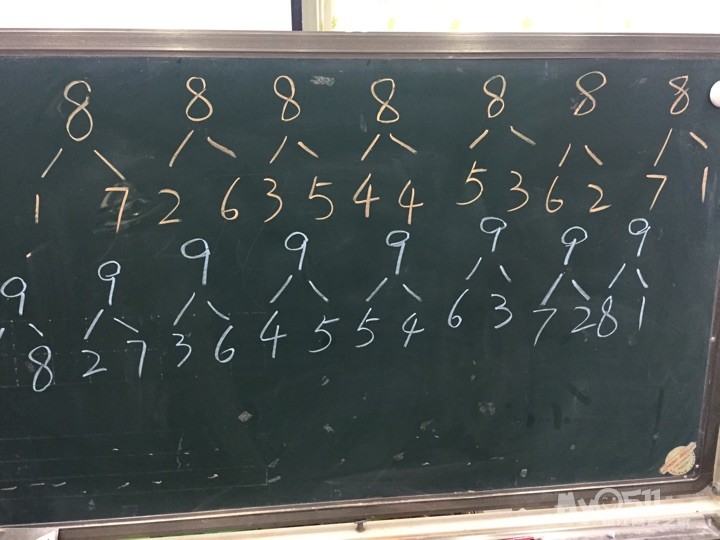 8 8 8 8 8 8 8
1 7 2 6 3 5 4 4 5 3 6 2 7 1
9 9 9 9 9 9 9 9
8 2 7 3 6 4 5 5 4 6 3 7 2 8 1